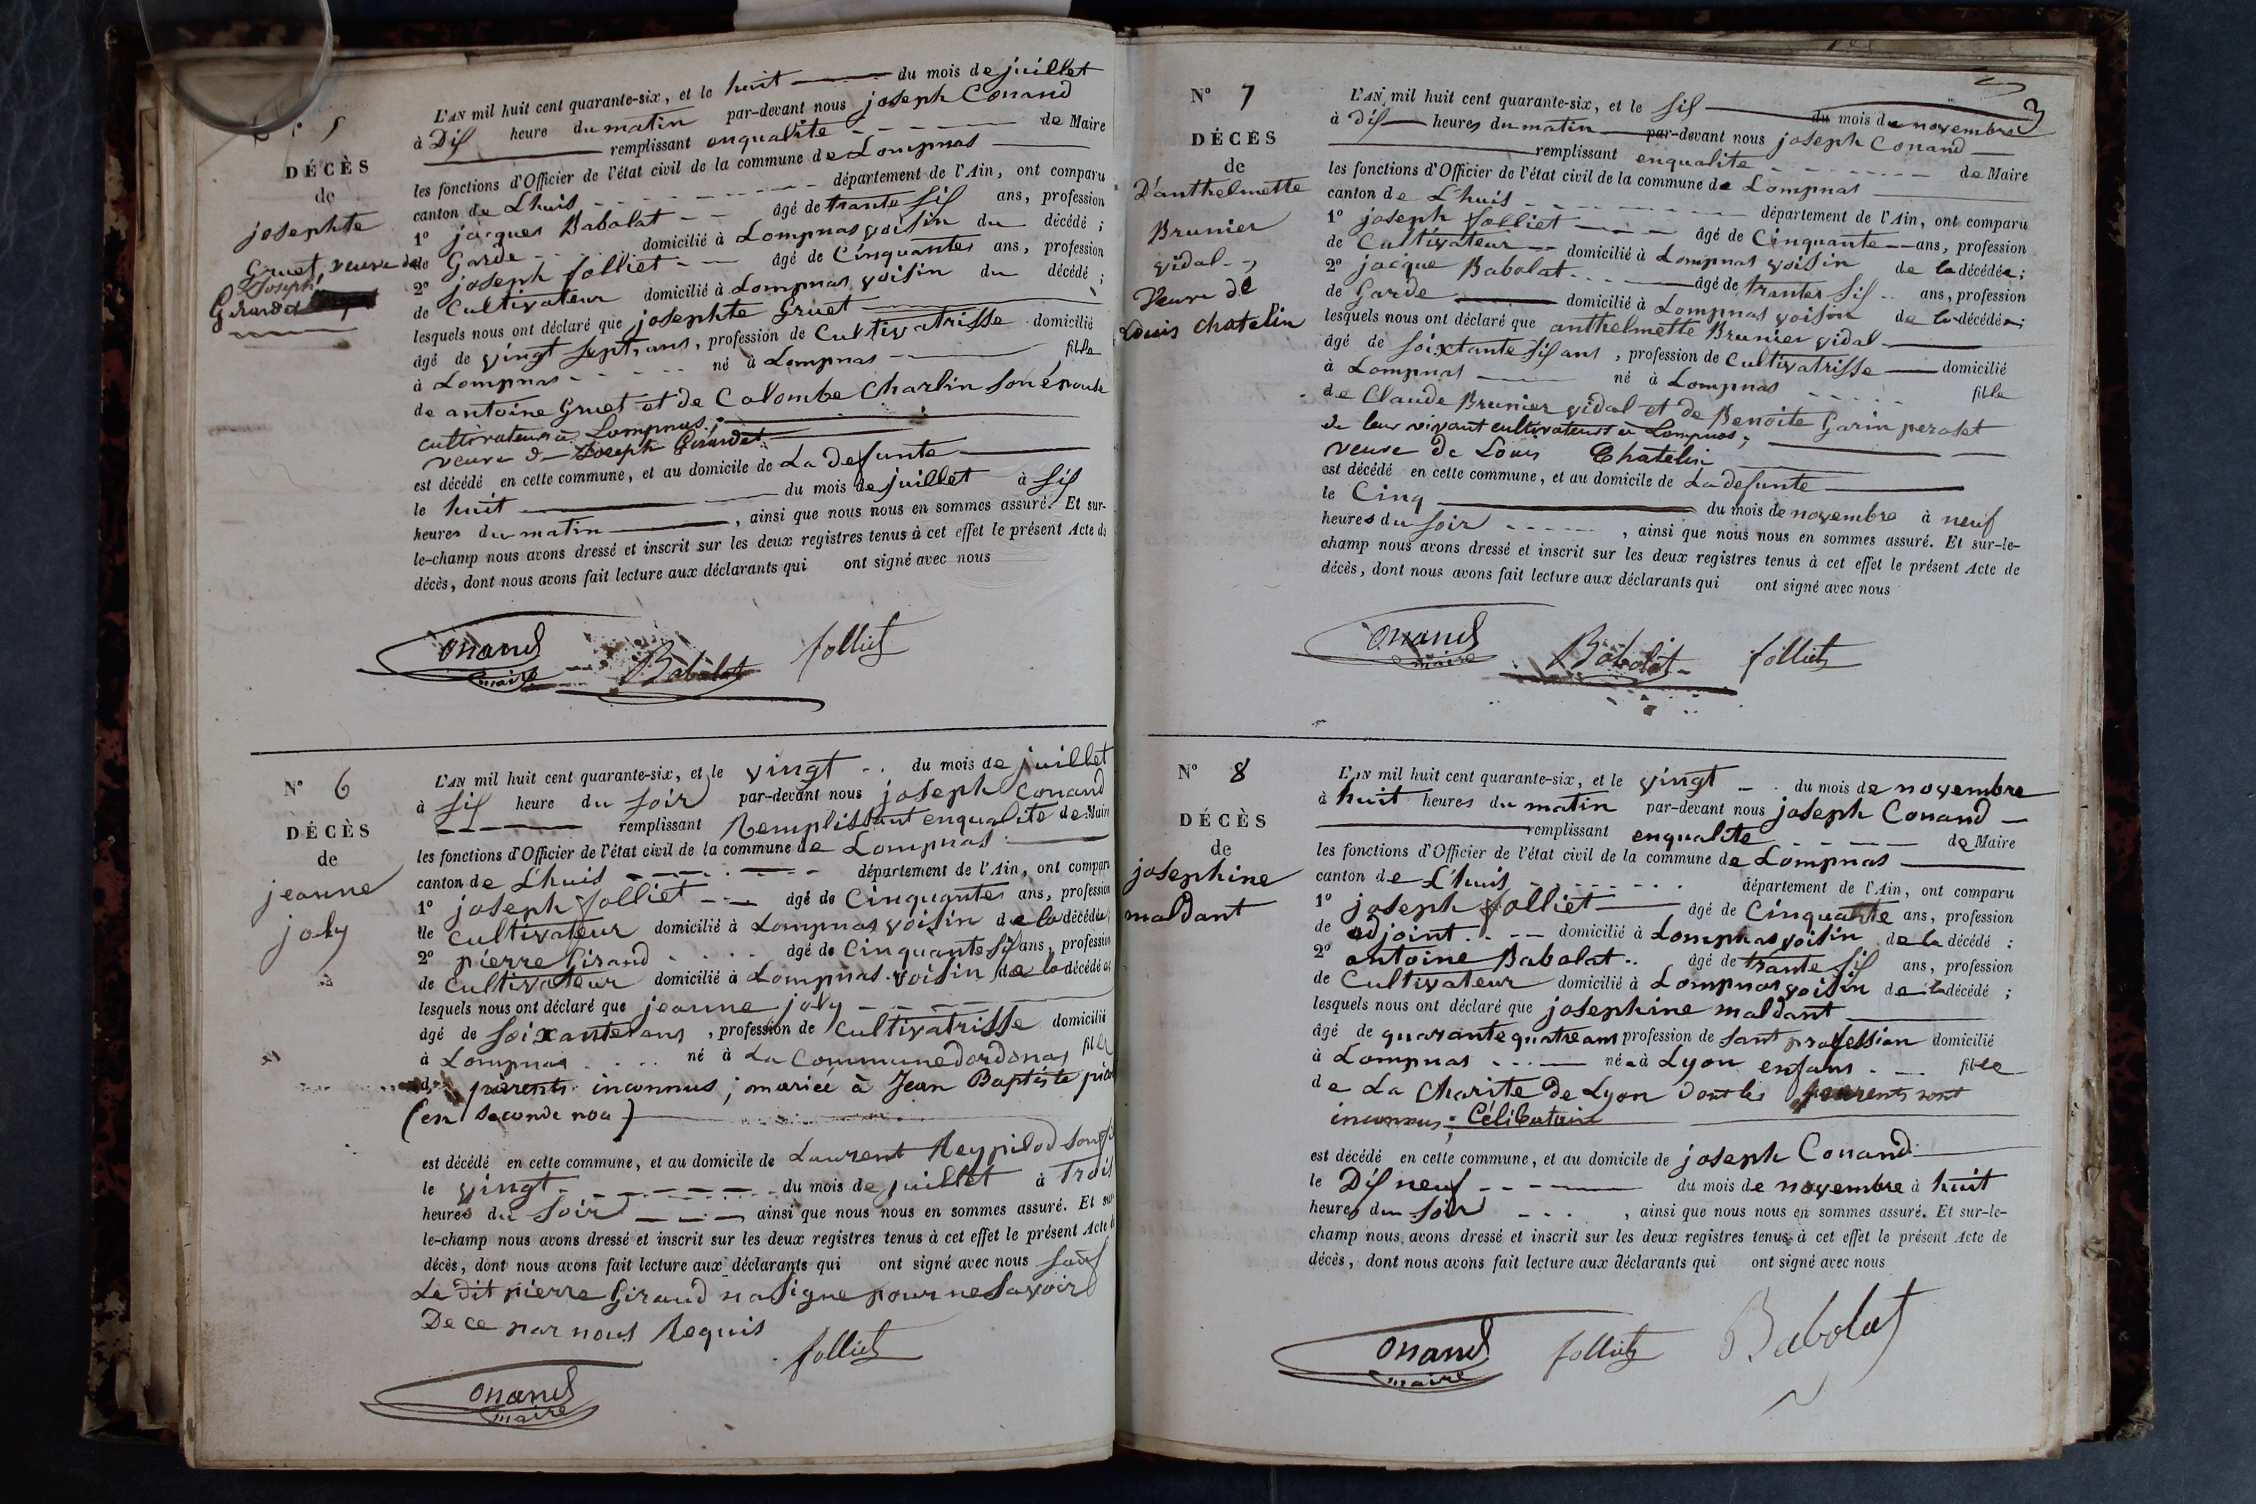 N° 5
DÉCÈS
de
josephte
Gruet, veuve de
Joseph
Girardet
L'AN mil huit cent quarante-six, et le huit du mois de juillet
à Dis heure du matin par-devant nous joseph Conand
remplissant enqualite de Maire
les fonctions d'Officier de l'état civil de la commune de Lompnas
canton de L'huis département de l'Ain, ont comparu
1° jacques Babolat âgé de trante sis ans, profession
de Garde domicilié à Lompnas voisin du décédé ;
2° joseph folliet âgé de Cinquantes ans, profession
de Cultivateur domicilié à Lompnas voisin du décédé ;
lesquels nous ont déclaré que josephte Gruet
âgé de vingt sept ans, profession de Cultivatrisse domicilié
à Lompnas né à Lompnas fille
de antoine Gruet et de Colombe Charlin son épouse
cultivateurs à Lompnas ;
veuve de Joseph Girardet
est décédé en cette commune, et au domicile de La defunte
le huit du mois de juillet à sis
heures du matin, ainsi que nous nous en sommes assuré. Et sur-
le-champ nous avons dressé et inscrit sur les deux registres tenus à cet effet le présent Acte de
décès, dont nous avons fait lecture aux déclarants qui ont signé avec nous
Conand
maire
Babolat
folliet
N° 6
DÉCÈS
de
jeanne
joly
L'AN mil huit cent quarante-six, et le vingt du mois de juillet
à sis heure du soir par-devant nous joseph Conand
remplissant Remplissant enqualite de Maire
les fonctions d'Officier de l'état civil de la commune de Lompnas
canton de L'huis département de l'Ain, ont comparu
1° joseph folliet âgé de Cinquantes ans, profession
de Cultivateur domicilié à Lompnas voisin de la décédée ;
2° pierre Giraud âgé de Cinquante sis ans, profession
de Cultivateur domicilié à Lompnas voisin de la décédé
lesquels nous ont déclaré que jeanne joly
âgé de soixante ans, profession de Cultivatrisse domicilié
à Lompnas né à La Commune dordonas fille
de parents inconnus ; mariée à Jean Baptiste
(en seconde noce)
est décédé en cette commune, et au domicile de Laurent Reypilod son
le vingt du mois de juillet à Trois
heures du soir ainsi que nous nous en sommes assuré. Et sur-
le-champ nous avons dressé et inscrit sur les deux registres tenus à cet effet le présent Acte de
décès, dont nous avons fait lecture aux déclarants qui ont signé avec nous sauf
Le dit pierre Giraud na signe pour ne savoir
De ce par nous Requis
folliet
Conand
maire
3
N° 7
DÉCÈS
de
D'anthelmette
Brunier
vidal
Veuve de
Louis chatelin
L'AN mil huit cent quarante-six, et le sis du mois de novembre
à dis heures du matin par-devant nous joseph Conand
remplissant enqualite de Maire
les fonctions d'Officier de l'état civil de la commune de Lompnas
canton de L'huis département de l'Ain, ont comparu
1° joseph folliet âgé de Cinquante ans, profession
de Cultivateur domicilié à Lompnas voisin de la décédée ;
2° jacque Babolat âgé de trantes sis ans, profession
de Garde domicilié à Lompnas voison de la décédée ;
lesquels nous ont déclaré que anthelmette Brunier vidal
âgé de soixtante sis ans, profession de Cultivatrisse domicilié
à Lompnas né à Lompnas fille
de Claude Brunier vidal et de Benoite Garin peroset
de leur vivant cultivateurs à Lompnas ;
veuve de Louis Chatelin
est décédé en cette commune, et au domicile de La defunte
le Cinq du mois de novembre à neuf
heures du soir, ainsi que nous nous en sommes assuré. Et sur-le-
champ nous avons dressé et inscrit sur les deux registres tenus à cet effet le présent Acte de
décès, dont nous avons fait lecture aux déclarants qui ont signé avec nous
Conand
maire
Babolat
folliet
N° 8
DÉCÈS
de
josephine
maldant
L'AN mil huit cent quarante-six, et le vingt du mois de novembre
à huit heures du matin par-devant nous joseph Conand
remplissant enqualite de Maire
les fonctions d'Officier de l'état civil de la commune de Lompnas
canton de L'huis département de l'Ain, ont comparu
1° joseph folliet âgé de Cinquante ans, profession
de adjoint domicilié à Lompnas voisin de la décédé ;
2° antoine Babolat âgé de trante sis ans, profession
de Cultivateur domicilié à Lompnas voisin de la décédé ;
lesquels nous ont déclaré que josephine maldant
âgé de quarante quatre ans profession de sant profession domicilié
à Lompnas né à Lyon enfans fille
de La Charite de Lyon dont les parents sont
inconnus ; Célibataire
est décédé en cette commune, et au domicile de joseph Conand
le Dis neuf du mois de novembre à huit
heures du soir, ainsi que nous nous en sommes assuré. Et sur-le-
champ nous avons dressé et inscrit sur les deux registres tenus à cet effet le présent Acte de
décès, dont nous avons fait lecture aux déclarants qui ont signé avec nous
Conand
maire
folliet
Babolat